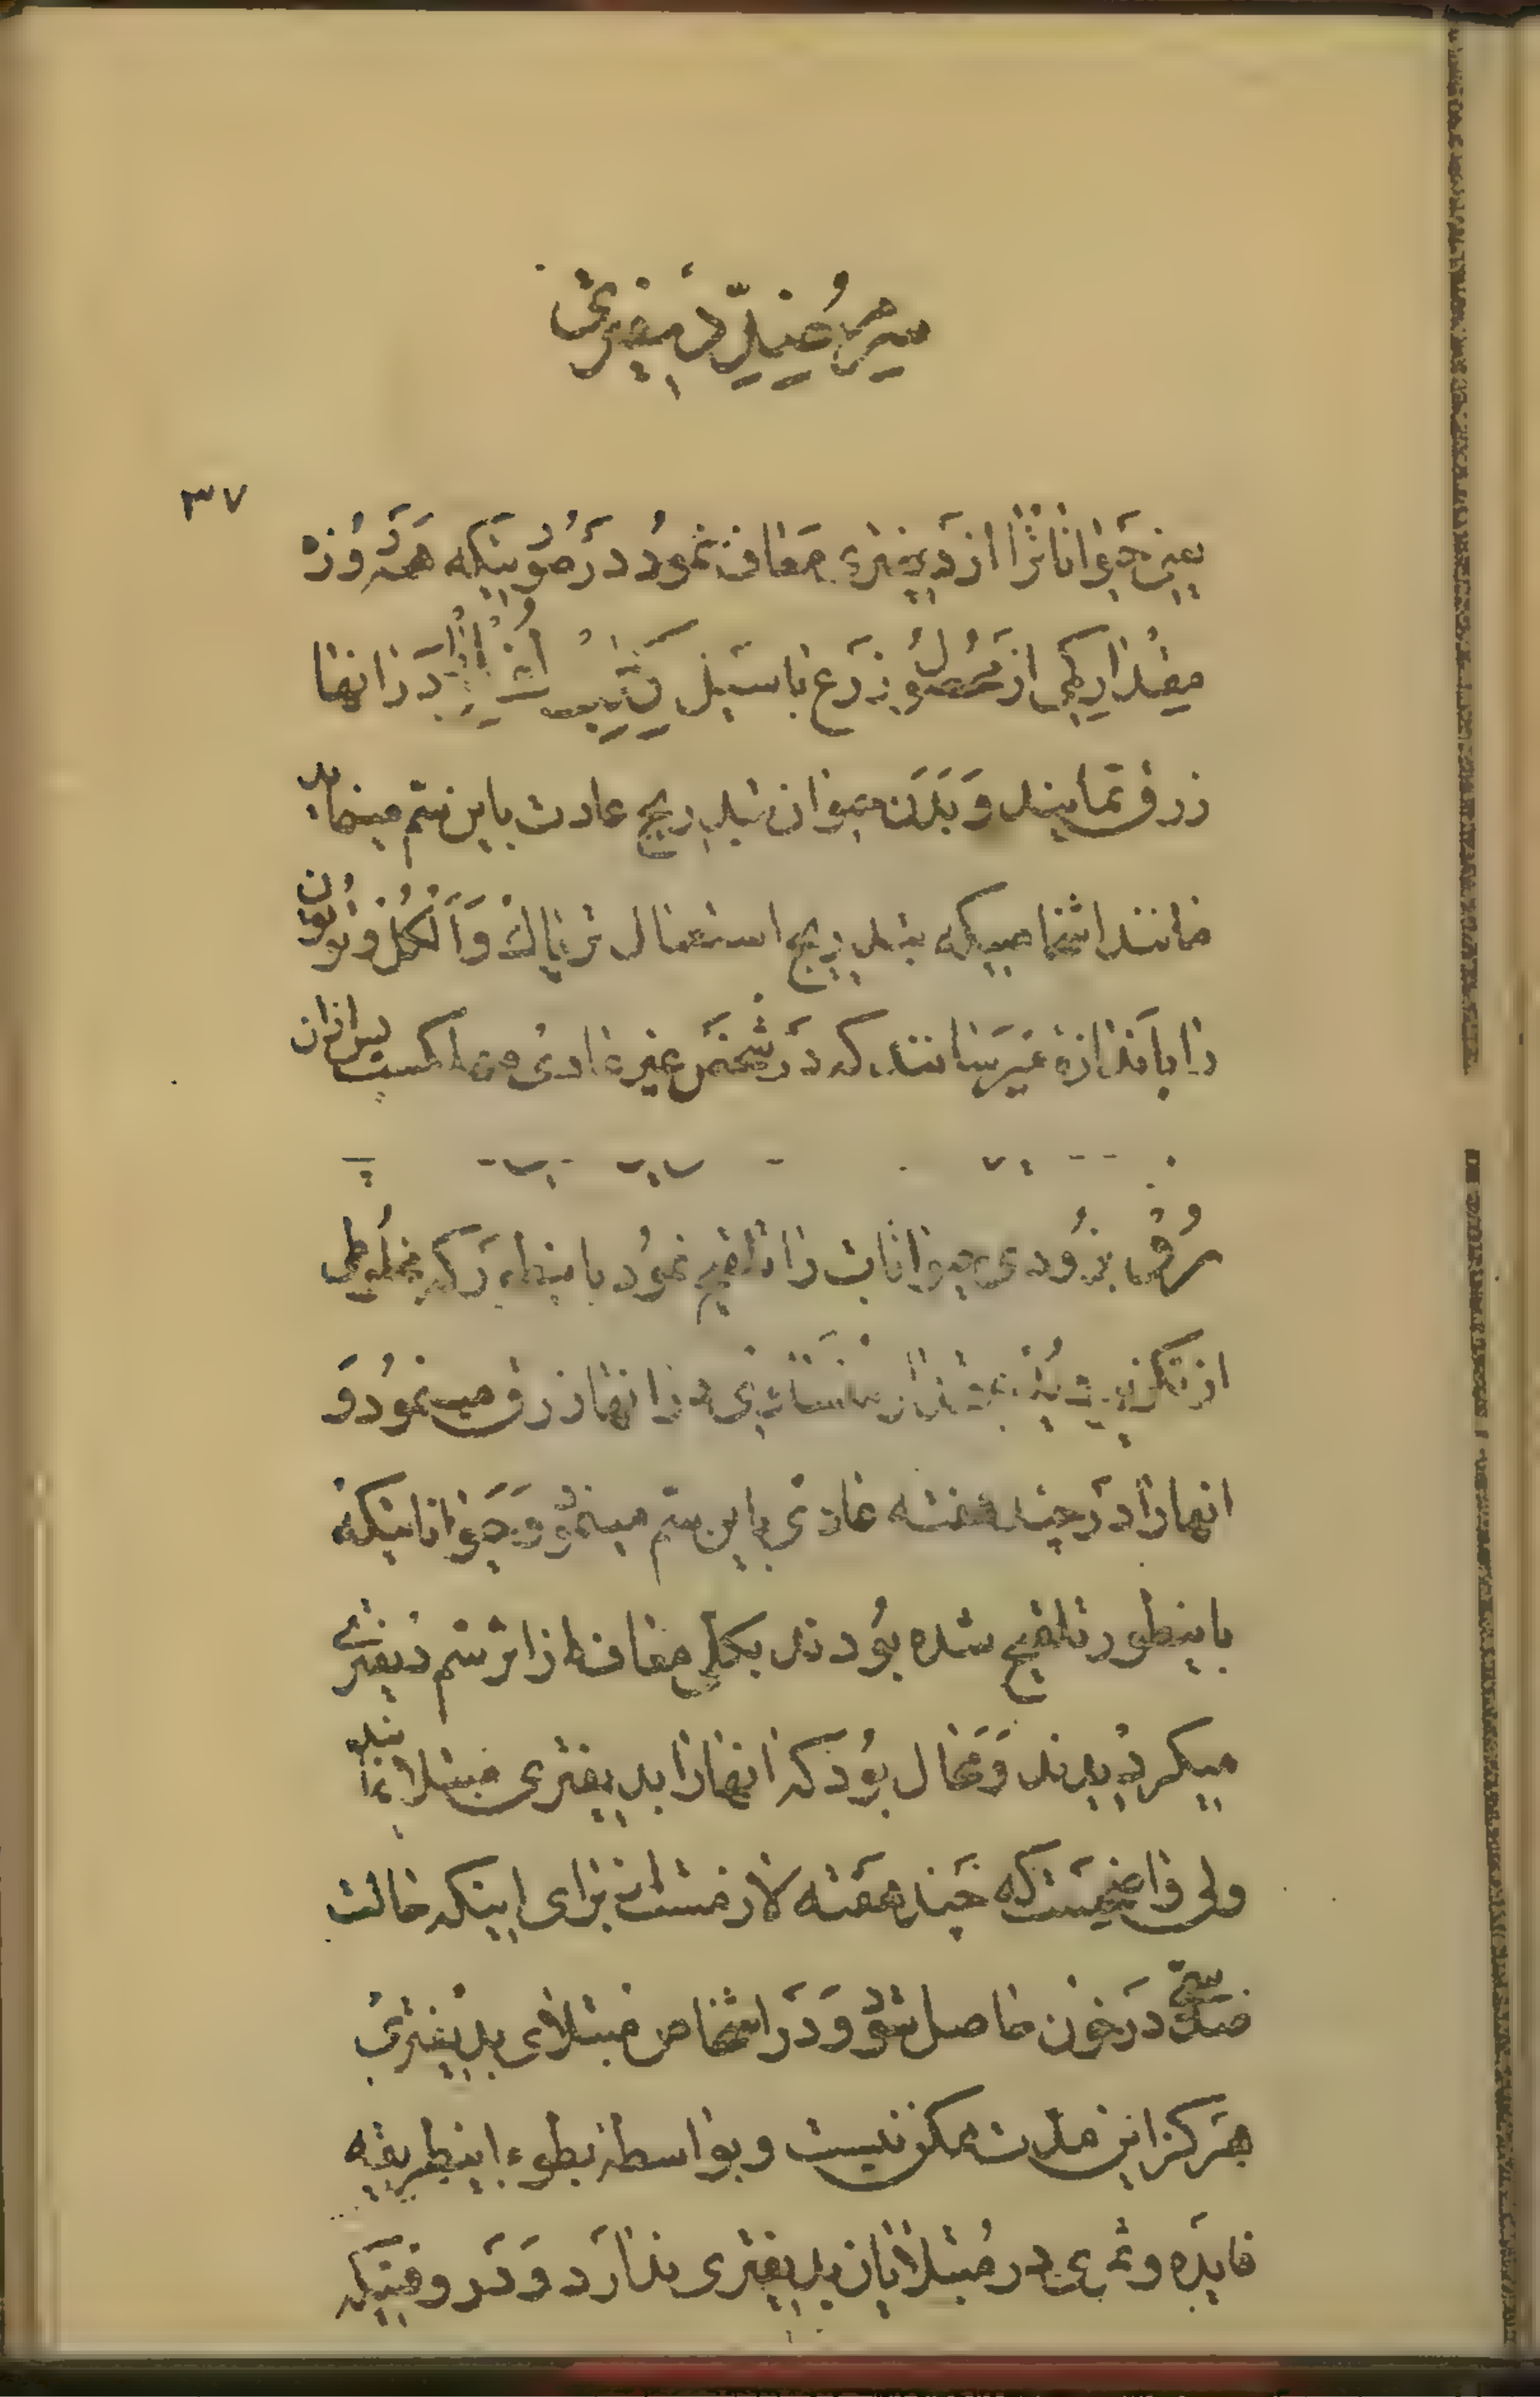 سرم ضد دیفتری
۳۷
یعنی حیوانات را از دیفتری معاف نمود در صورتیکه همه روزه
مقدار کمی از محصول زرع باسیل در انها
زرق نمایند و بدن حیوان بتدریج عادت باین سم مینماید
مانند اشخاصیکه بتدریج استعمال تریاک و الکل و توتون
را باندازهٔ میرسانند که در شخص غیر عادی مهلکست
برودی حیوانات را تلقیح نمود باینطور که مخلوطی
از در انها زرق مینمود و
انها را در چند هفته عادی باین سم مینمود و حیواناتیکه
باینطور تلقیح شده بودند بکلی معاف از اثر سم دیفتری
میگردیدند و محال بود که انها را بدیفتری مبتلا نمایند
ولی واضحست که چند هفته لازمست از برای اینکه حالت
ضد سمی در خون حاصل شود و در اشخاص مبتلای بدیفتری
هرگز این مدت ممکن نیست و بواسطه بطوء اینطریقه
فایده و ثمری در مبتلایان بدیفتری ندارد و در وقتیکه